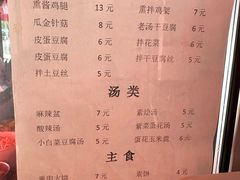 熏酱鸡腿 13 元 熏拌鸡架
瓜金针菇 8 元 老汤干豆腐 6元
皮蛋豆腐 6 元 拌花菜 6元
皮蛋豆腐 6 元 拌干豆腐丝 5元
拌土豆丝 5 元
汤类
麻辣盆 7 元 素烩汤 5元
酸辣汤 5 元 紫菜蛋花汤 5元
小白菜豆腐汤 5元 蛋花玉米羹 6元
主食
大饼 2元 素饼 4元